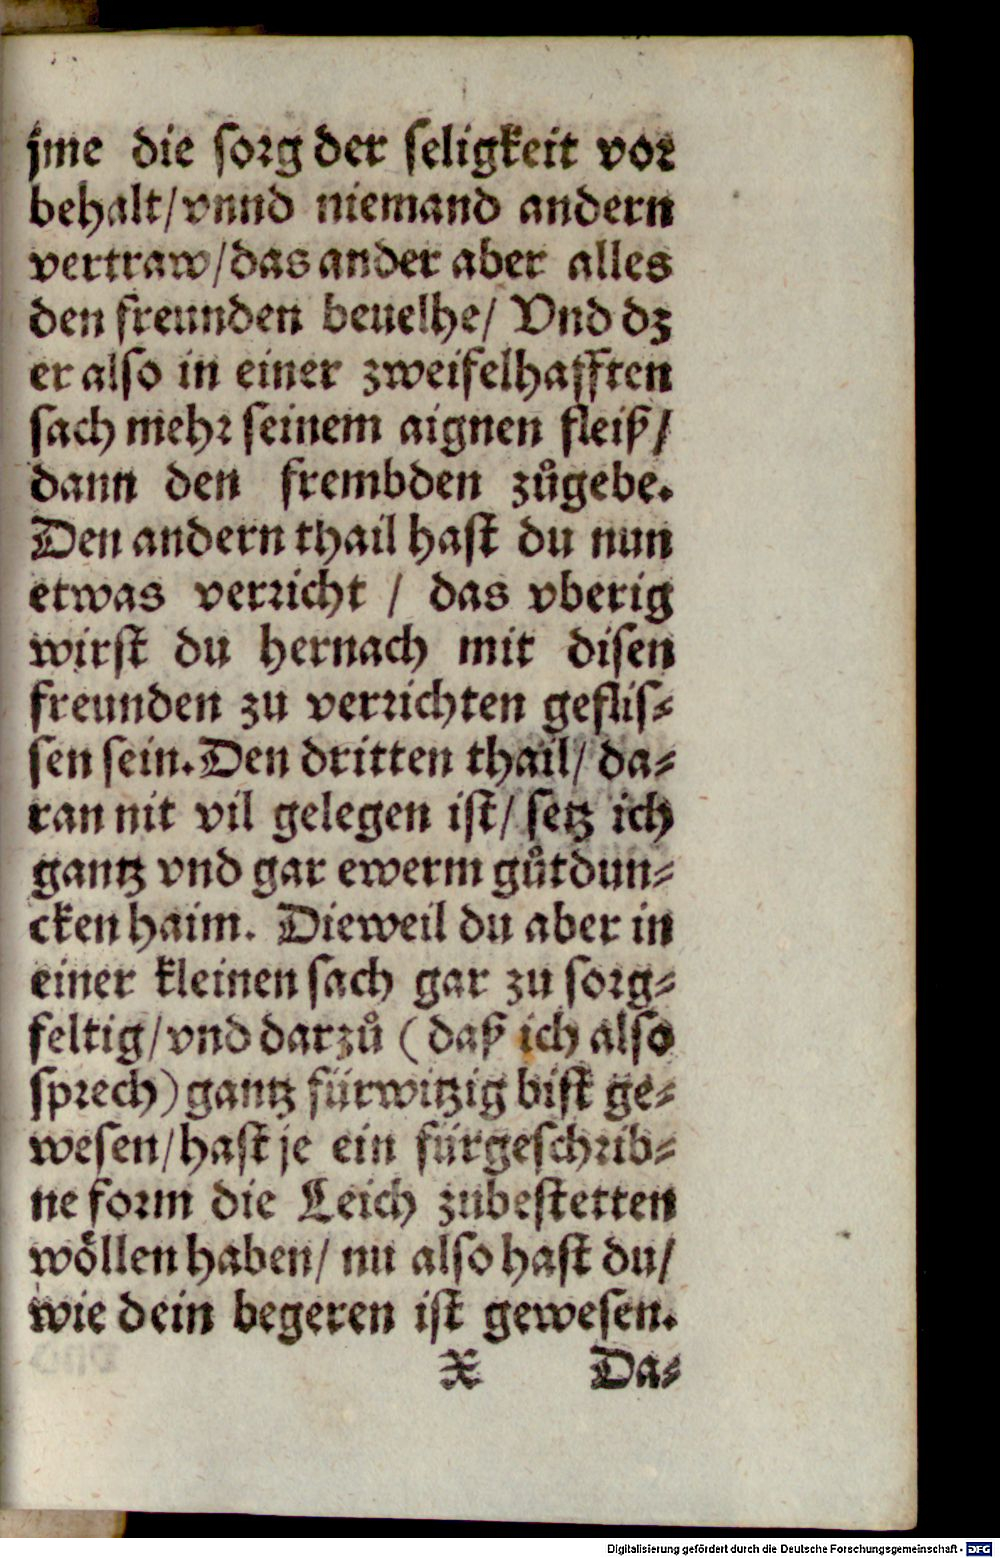 jme die sorg der seligkeit vor
behalt/vnnd niemand andern
vertraw/das ander aber alles
den freunden beuelhe/ Vnd dz
er also in einer zweifelhafften
sach mehr seinem aignen fleiß/
dann den frembden zůgebe.
Den andern thail hast du nun
etwas verricht / das vberig
wirst du hernach mit disen
freunden zu verrichten geflis⸗
sen sein. Den dritten thail/ da⸗
ran nit vil gelegen ist/ setz ich
gantz vnd gar ewerm gůtdun⸗
cken haim. Dieweil du aber in
einer kleinen sach gar zu sorg⸗
feltig/vnd darzů (daß ich also
sprech) gantz fürwitzig bist ge⸗
wesen/hast je ein fürgeschrib⸗
ne form die Leich zubestetten
wöllen haben/ nu also hast du/
wie dein begeren ist gewesen.
X Da⸗
Digitalisierung gefördert durch die Deutsche Forschungsgemeinschaft - DFG